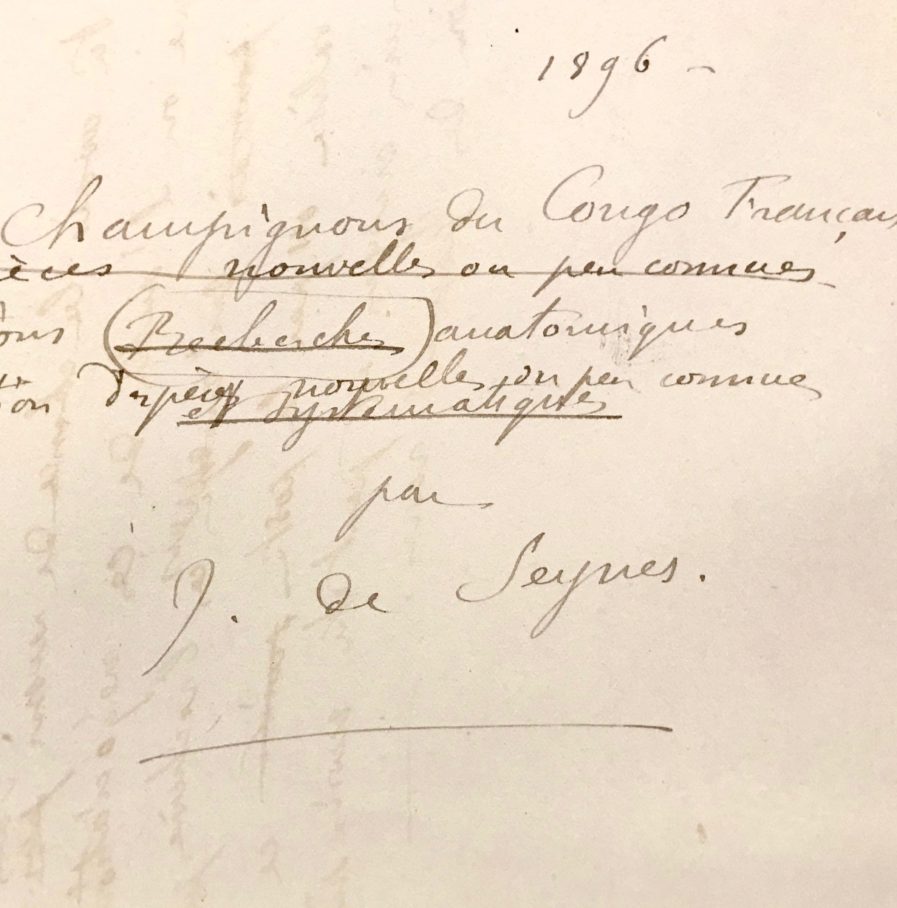 1896 -
Champignons du Congo Français
èces nouvelles ou peu connues
ons (Recherches) anatomiques
ion d'espèces nouvelles ou peu connues
et systématiques
par
J. de Seynes.